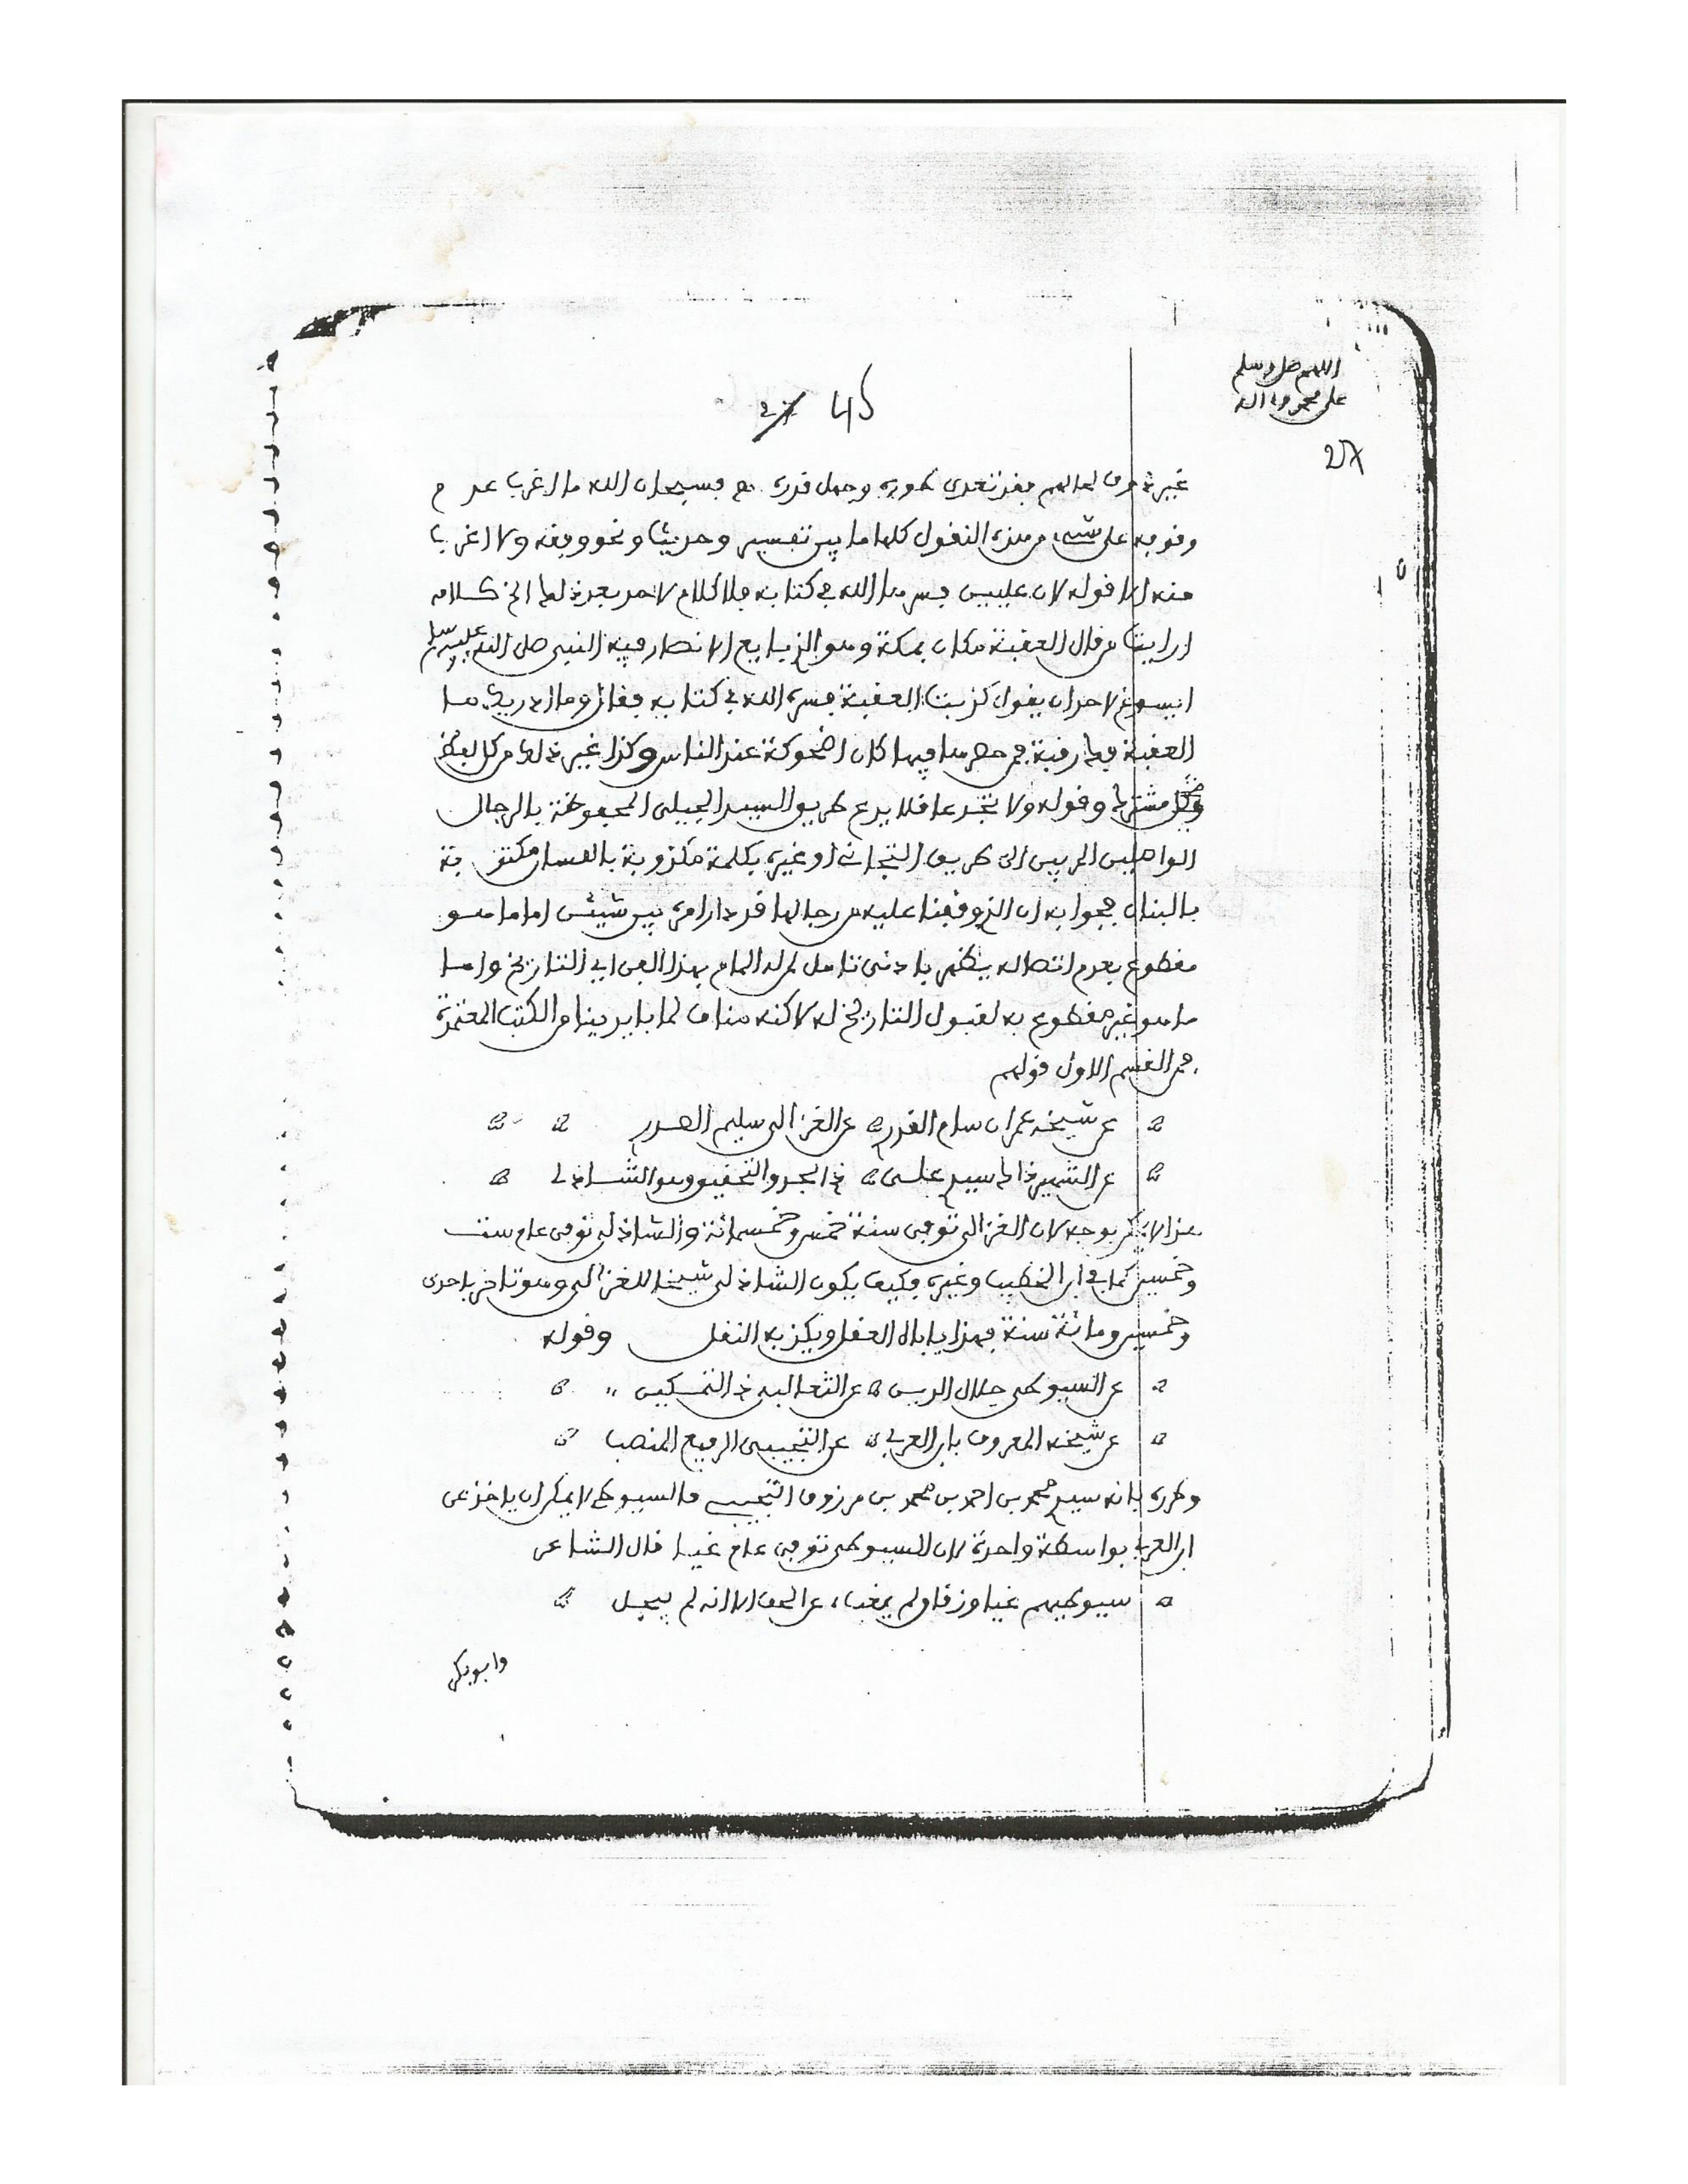 اللهم صل وسلم
على محمد وءاله
27
45
غيره عرف لحالهم فقد تعدى طوره وجهل قدره فسبحان الله ما اغرب عدم
وقوفه على شىء من هذه النقول كلها ما بين تفسير وحديث ونحو وفقه ولا اغرب
منه الا قوله لان عليين فسرها الله في كتابه فلا كلام لاحد بعد ذلك الخ كلامه
ارايت من قال العقبة مكان بمكة وهو الذي بايع الانصار فيه النبي صلى الله عليه وسلم
ايسوغ لاحد ان يقول كذبت العقبة فسره الله في كتابه فقال وما ادريك ما
العقبة فك رقبة فمن حصرها فيها كان اضحوكة عند الناس وكذا غير ذلك من كل لفظ
مشترك وقوله ولا تجد عاقلا يدع طريق السيد الجيلي المحفوظة بالرجال
الواصلين الى طريق التجاني او غيره بكلمة مكذوبة باللسان مكتوبة
بالبنان فجوابه ان الذي وقفنا عليه من رجالها قد دار امره بين شيئين اما ما هو
مقطوع بعدم اتصاله يظهر بادنى تامل لمن له المام بهذا الفن اي التاريخ واما
ما هو غير مقطوع به لقبول التاريخ له لاكنه مناف لما بايدينا من الكتب المعتمدة
فمن القسم الاول قولهم
عن شيخه عمران سام القدر عن الغزالي سليم الصدر
عن الشهير ذاك سيد علي ذي الجد والتحقيق وهو الشاذلي
هذا لا يمكن بوجه لان الغزالي توفي سنة خمس وخمسمائة والشاذلي توفي عام ست
وخمسين كما في ابن الخطيب وغيره فكيف يكون الشاذلي شيخا للغزالي وهو تاخر باحدى
وخمسين ومائة سنة فهذا ياباه العقل ويكذبه النقل وقوله
عن السيوطي جلال الدين عن الثعالبي ذي التمكين
عن شيخه المعروف بابن العربي عن التجيبي الرفيع المنصب
وطرره بانه سيد محمد بن احمد بن محمد بن مرزوق التجيبي فالسيوطي لا يمكن ان ياخذ عن
ابن العربي بواسطة واحدة لان السيوطي توفي عام غيا قال الشاعر
سيوطيهم غيا وزقاق لم يغب عن الحق الا انه لم يبجل
وابو بكر